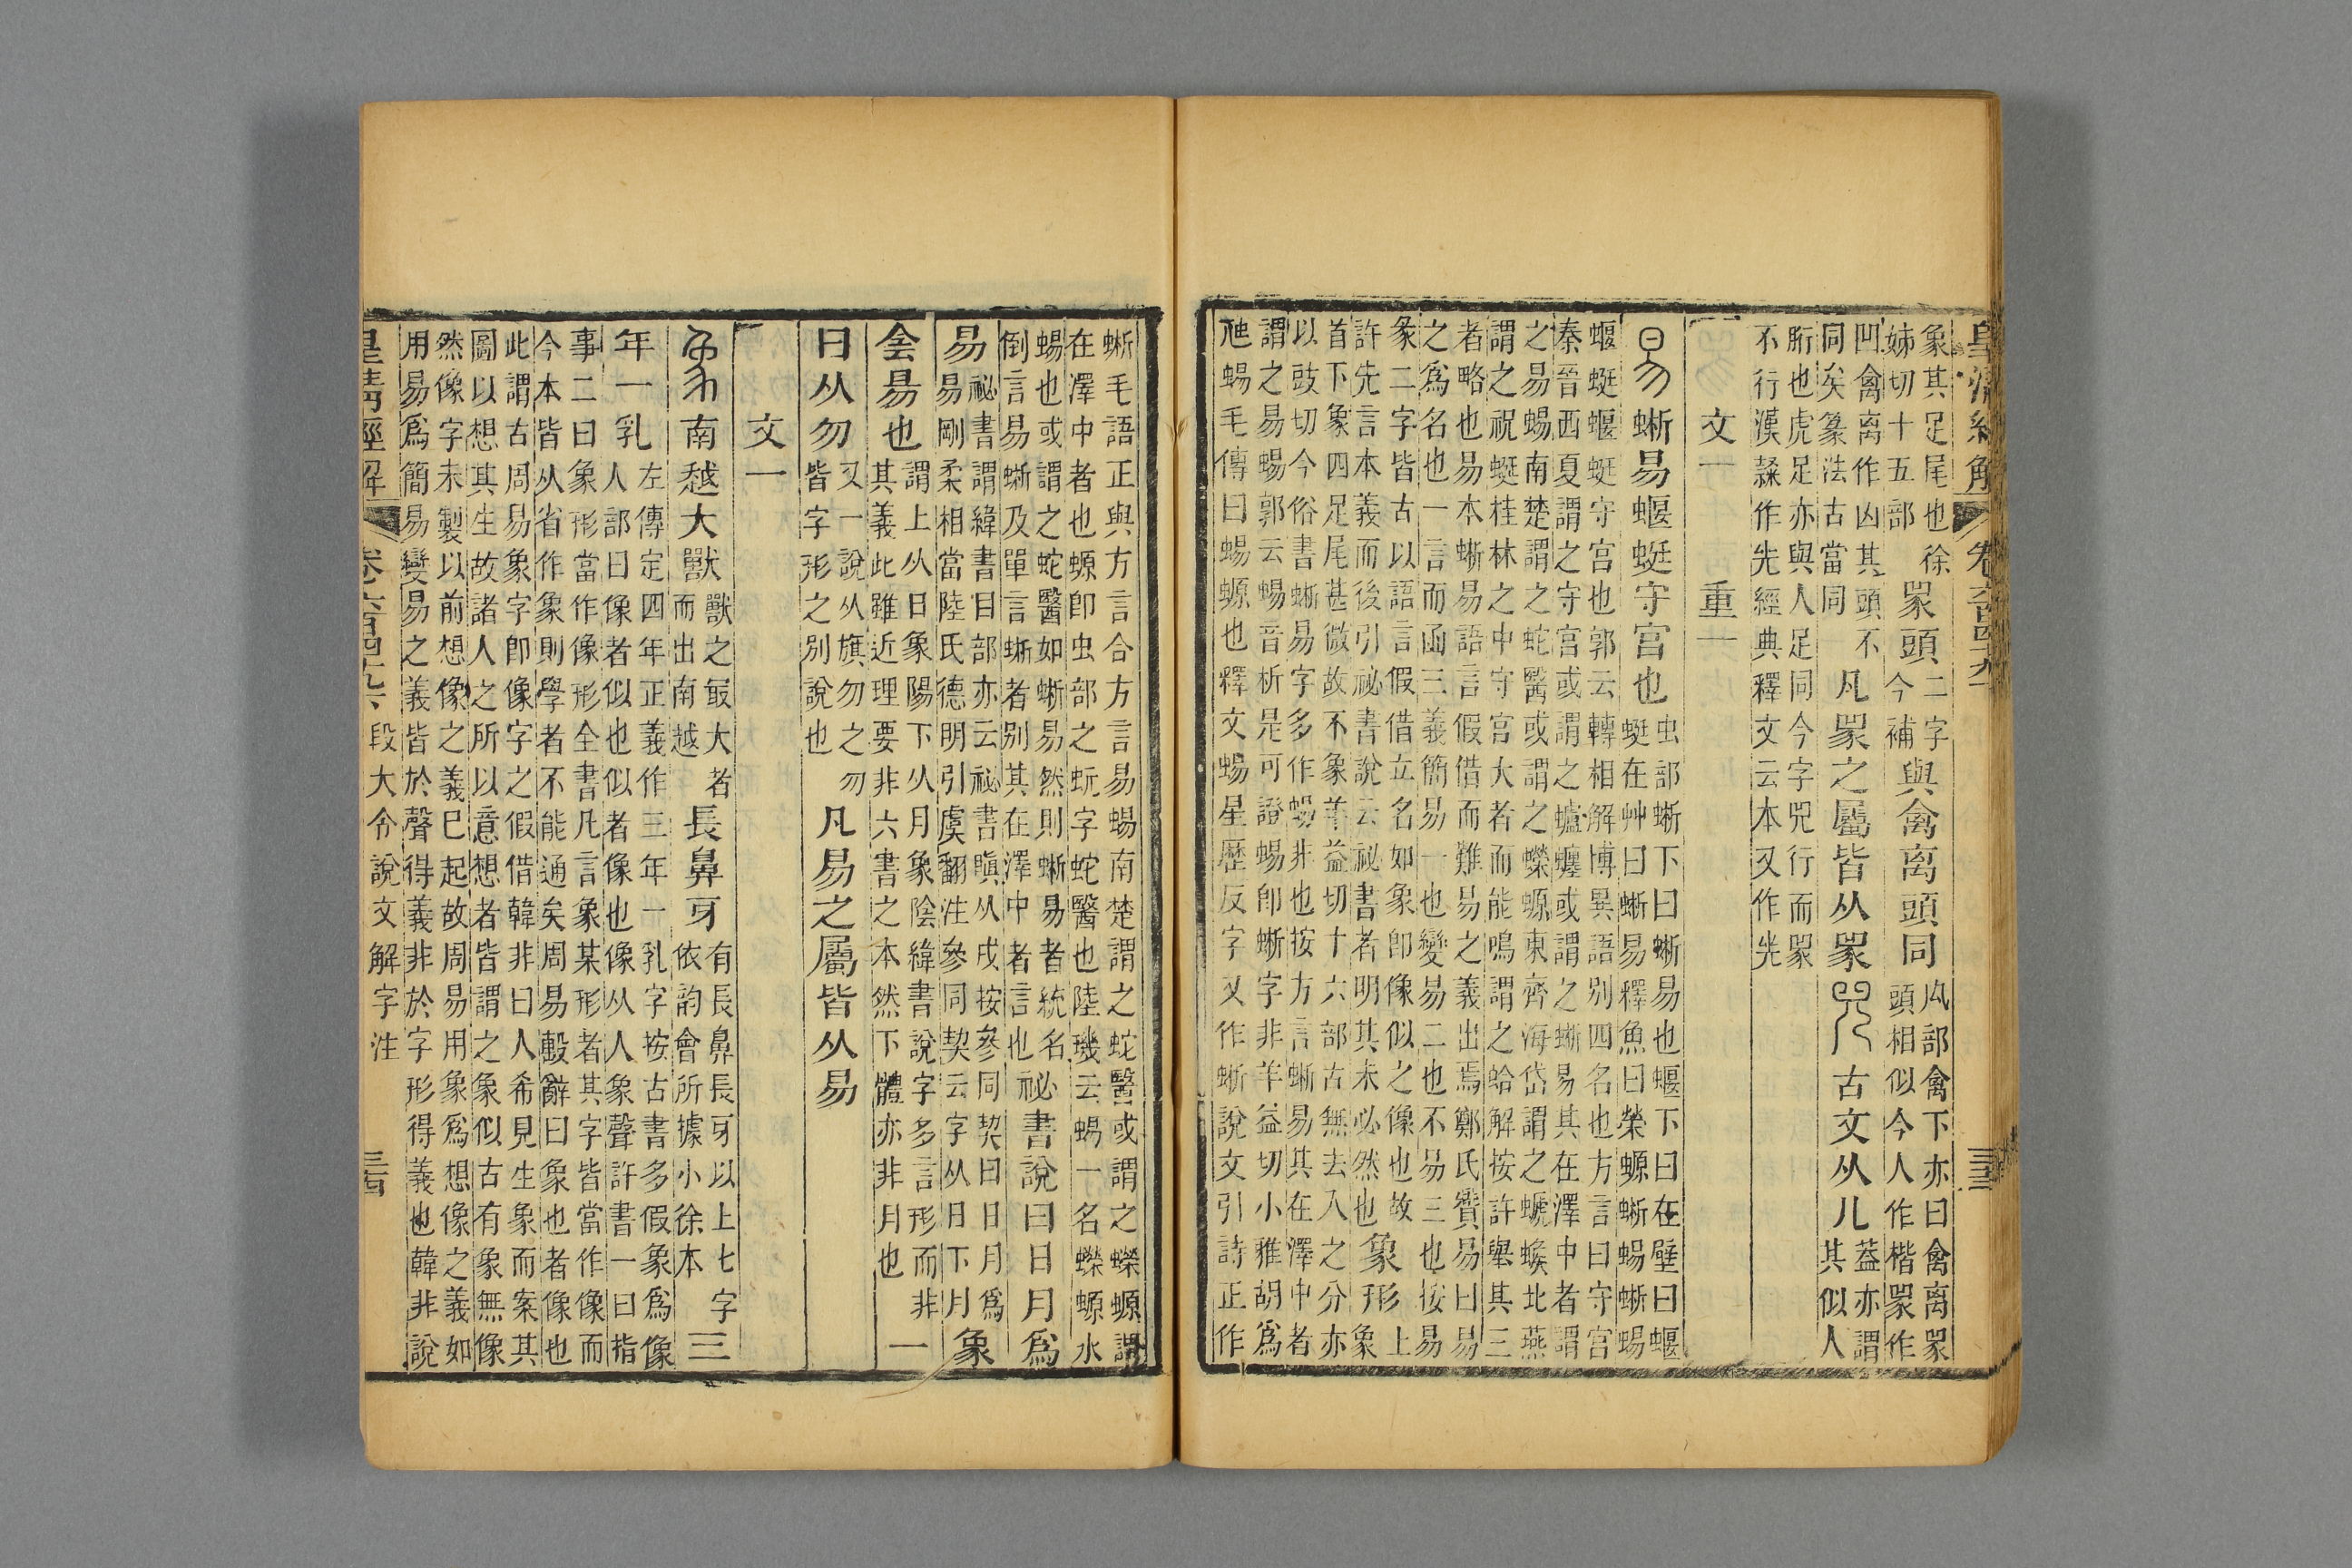 皇清經解 卷六百四十九 三十三
象其足尾也徐
姊切十五部
𤉡頭
二字
今補
與禽离頭同
厹部禽下亦曰禽离𤉡
頭相似今人作楷𤉡作
凹禽离作凶其頭不
同矣篆法古當同
凡𤉡之屬皆从𤉡
古文从儿
葢亦謂
其似人
胻也虎足亦與人足同今字兕行而𤉡
不行漢隸作先經典釋文云本又作光
文一 重一
易 蜥易蝘蜓守宮也
虫部蜥下曰蜥易也蝘下曰在壁曰蝘
蜓在艸曰蜥易釋魚曰榮螈蜥蜴蜥蜴
蝘蜓蝘蜓守宮也郭云轉相解博異語別四名也方言曰守宮
秦晉西夏謂之守宮或謂之蠦𧔧或謂之蜥易其在澤中者謂
之易蜴南楚謂之蛇醫或謂之蠑螈東齊海岱謂之螔䗔北燕
謂之祝蜓桂林之中守宮大者而能鳴謂之蛤解按許舉其三
者略也易本蜥易語言假借而難易之義出焉鄭氏贊易曰易
之爲名也一言而函三義簡易一也變易二也不易三也按易
彖二字皆古以語言假借立名如象卽像似之像也故
許先言本義而後引祕書說云祕書者明其未必然也
象形
上
象
首下象四足尾甚微故不象羊益切十六部古無去入之分亦
以豉切今俗書蜥易字多作蜴非也按方言蜥易其在澤中者
謂之易蜴郭云蜴音析是可證蜴卽蜥字非羊益切小雅胡爲
虺蜴毛傳曰蜴螈也釋文蜴星歷反字又作蜥說文引詩正作
蜥毛語正與方言合方言易蜴南楚謂之蛇醫或謂之蠑螈謂
在澤中者也螈卽虫部之蚖字蛇醫也陸璣云蜴一名蠑螈水
蜴也或謂之蛇醫如蜥易然則蜥易者統名
倒言易蜥及單言蜥者別其在澤中者言也
祕書說曰日月爲
易
祕書謂緯書目部亦云祕書瞋从戌按參同契曰日月爲
易剛柔相當陸氏德明引虞翻注參同契云字从日下月
象
侌昜也
謂上从日象陽下从月象陰緯書說字多言形而非
其義此雖近理要非六書之本然下體亦非月也
一
曰从勿
又一說从旗勿之勿
皆字形之別說也
凡易之屬皆从易
文一
象 南越大獸
獸之最大者
而出南越
長鼻牙
有長鼻長牙以上七字
依韵會所據小徐本
三
年一乳
左傳定四年正義作三年一乳字按古書多假象爲像
人部曰像者似也似者像也像从人象聲許書一曰指
事二曰象形當作像形全書凡言象某形者其字皆當作像而
今本皆从省作象則學者不能通矣周易毄辭曰象也者像也
此謂古周易象字卽像字之假借韓非曰人希見生象而案其
圖以想其生故諸人之所以意想者皆謂之象似古有象無像
然像字未製以前想像之義已起故周易用象爲想像之義如
用易爲簡易變易之義皆於聲得義非於字形得義也韓非說
皇清經解 卷六百四十九 段大令說文解字注 三十四